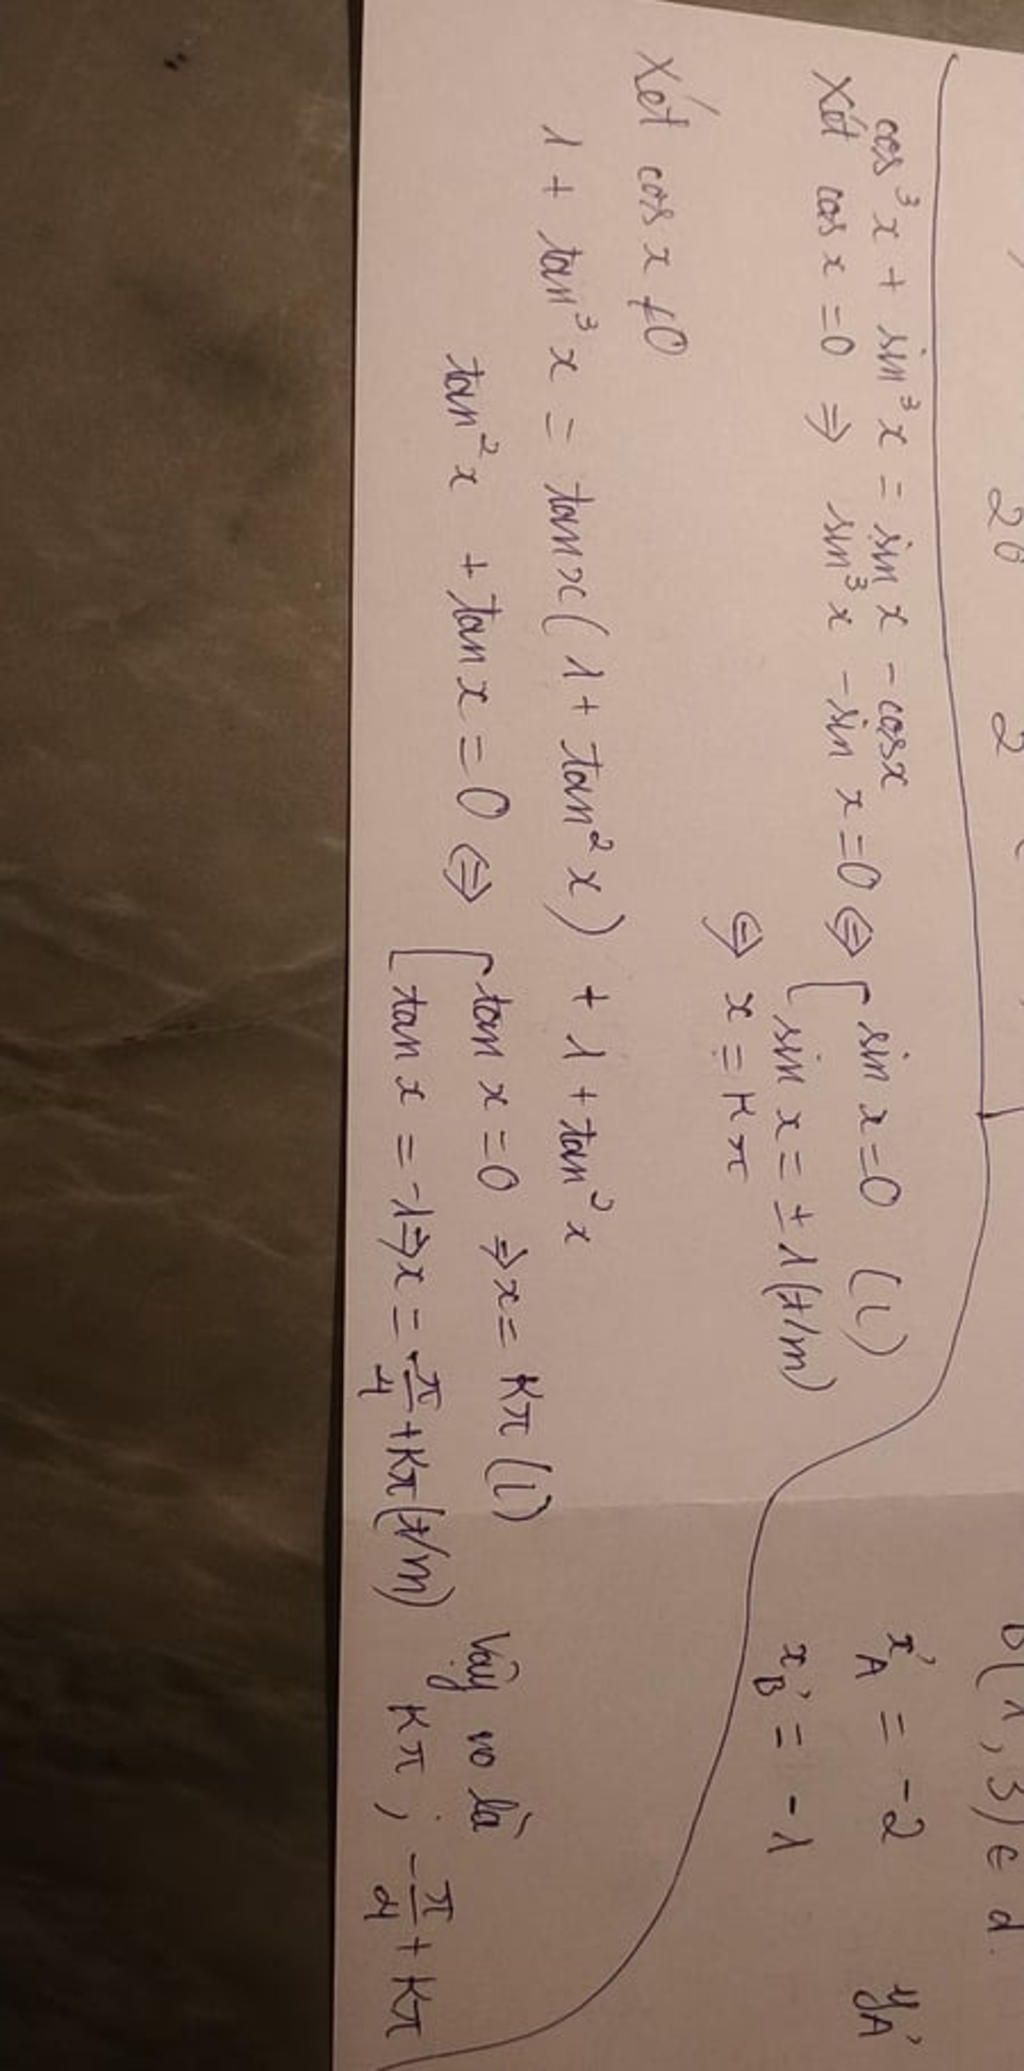 26 2
B(1, 3) ∈ d.
x'A = -2 y'A
x'B = -1
cos³x + sin³x = sin x - cosx
Xét cos x = 0 ⇒ sin³x - sin x = 0 ⇔ [ sin x = 0 (L)
sin x = ±1 (t/m)
⇔ x = kπ
Xét cos x ≠ 0
1 + tan³x = tanx(1 + tan²x) + 1 + tan²x
tan²x + tan x = 0 ⇔ [ tan x = 0 ⇒ x = kπ (L)
tan x = -1 ⇒ x = -π/4 + kπ (t/m)
Vậy no là
kπ ; -π/4 + kπ